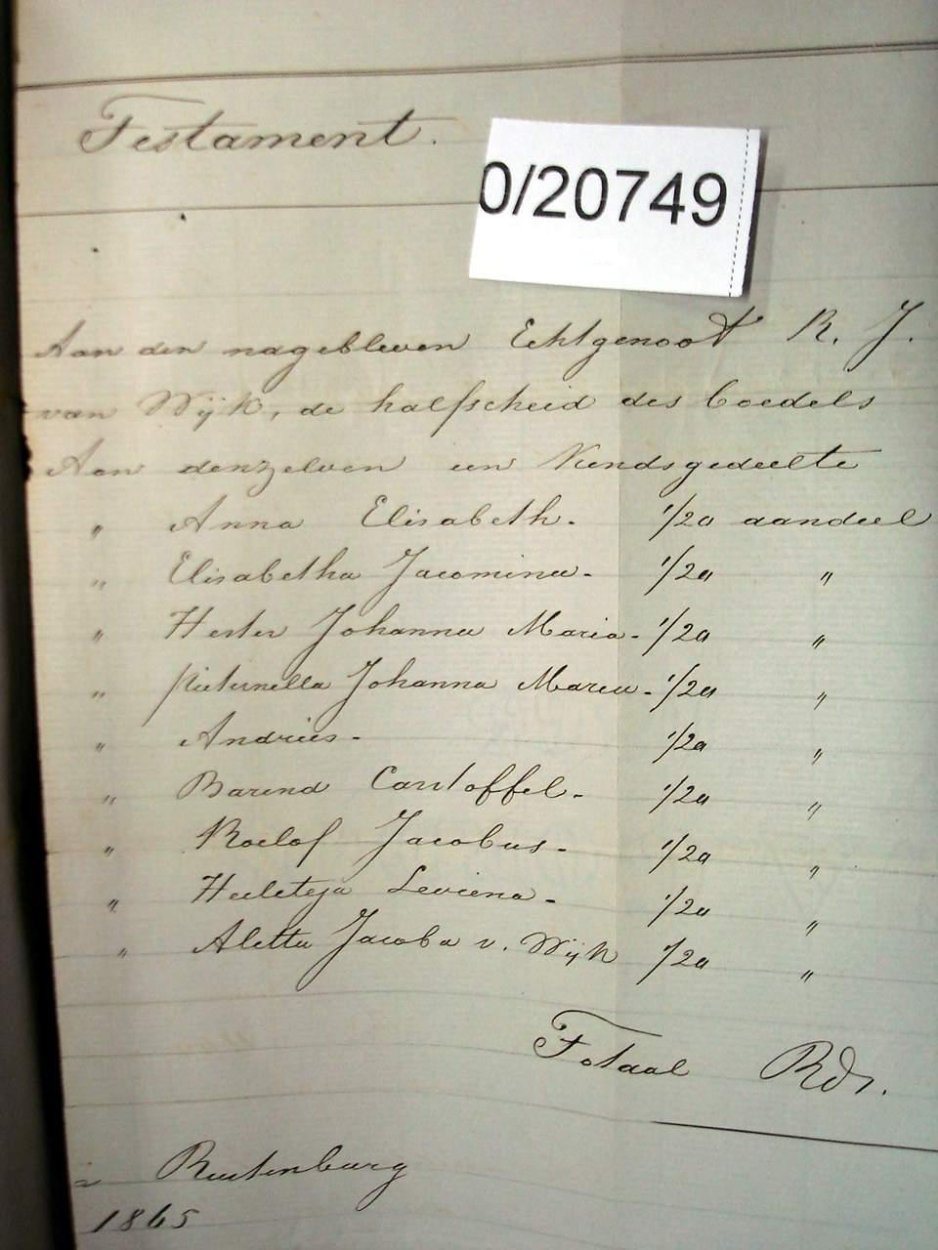 Testament.
0/20749
Aan den nagebleven Echtgenoot R. J.
van Wijk, de halfscheid des boedels
Aan denzelven een Kindsgedeelte
" Anna Elisabeth. 1/20 aandeel
" Elisabetha Jacomina - 1/20 "
" Hester Johanna Maria - 1/20 "
" Pieternella Johanna Maria - 1/20 "
" Andries - 1/20 "
" Barend Cristoffel - 1/20 "
" Roelof Jacobus - 1/20 "
" 1/20 "
" Aletta Jacoba v. Wijk 1/20 "
Totaal Rds.
Rustenburg
1865